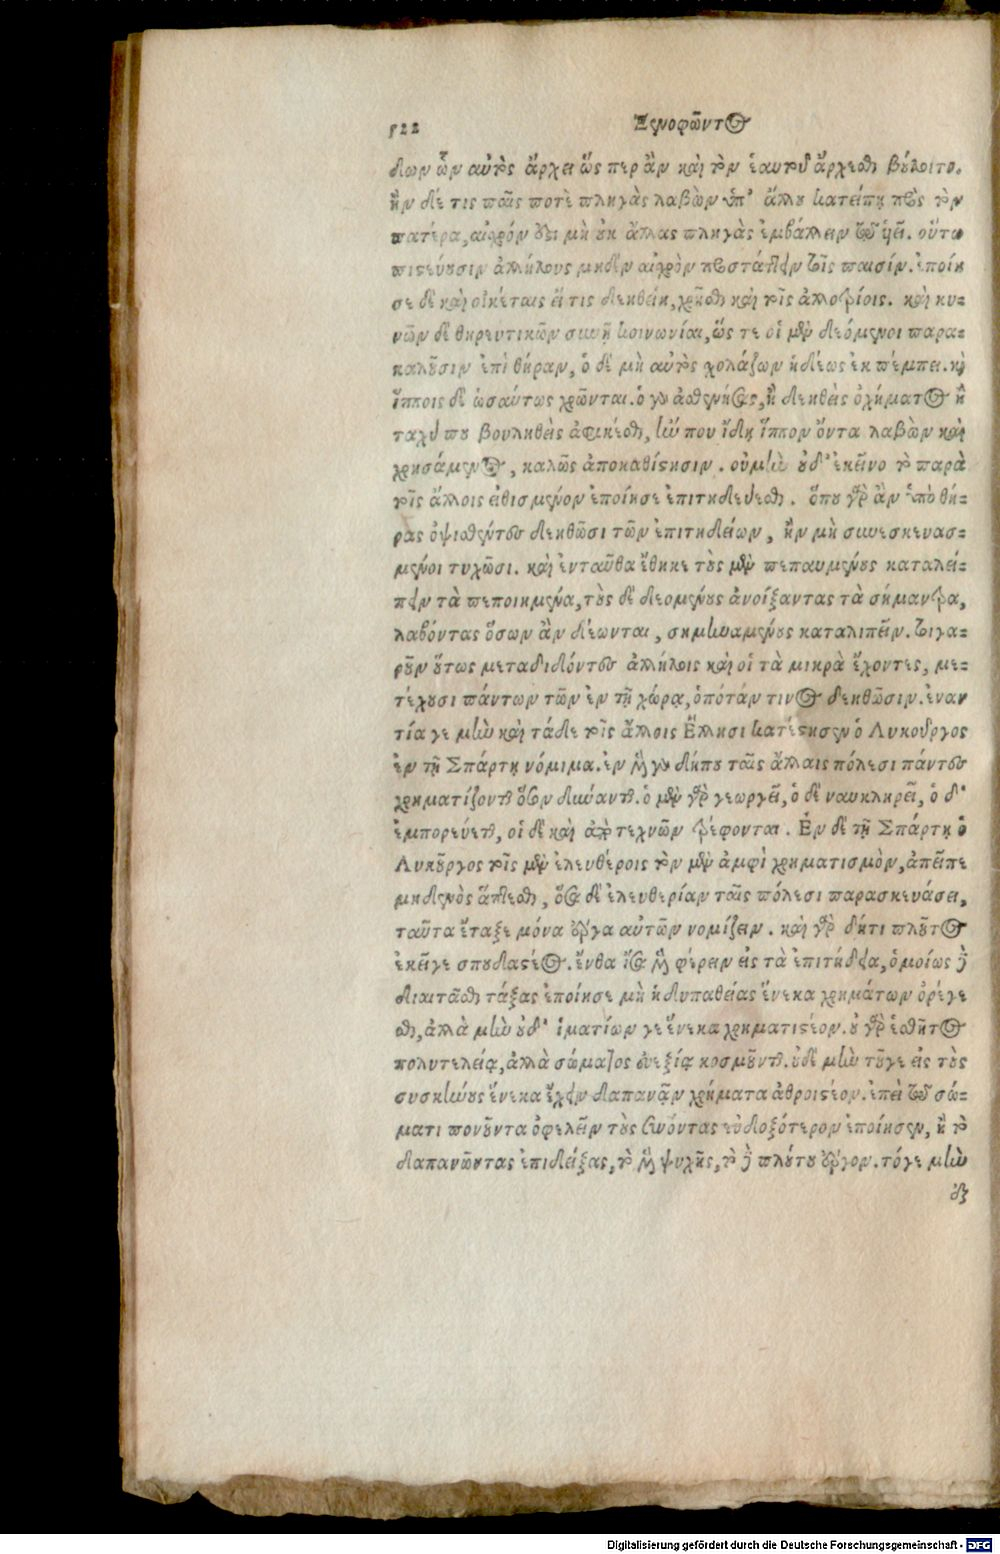 522 Ξενοφῶντος
δίων ὧν αὐτὸς ἄρχει ὥς περ ἂν καὶ τὸν ἑαυτοῦ ἄρχεσθαι βούλοιτο.
ἢν δέ τις παῖς ποτὲ πληγὰς λαβὼν ὑπ' ἄλλου κατείπῃ πρὸς τὸν
πατέρα, αἰσχρόν ὅτι μὴ οὐκ ἄλλας πληγὰς ἐμβάλλειν τῷ ὑεῖ. οὕτω
πιστεύουσιν ἀλλήλους μηδὲν αἰσχρὸν προστάττειν τοῖς παισίν. ἐποίη
σε δὲ καὶ οἰκέταις εἴ τις δεηθείη, χρῆσθαι καὶ τοῖς ἀλλοτρίοις. καὶ κυ=
νῶν δὲ θηρευτικῶν συνῆ κοινωνίαι, ὥς τε οἱ μὲν δεόμενοι παρα=
καλοῦσιν ἐπὶ θήραν, ὁ δὲ μὴ αὐτὸς χολάζων ἡδέως ἐκ πέμπει. καὶ
ἵπποις δὲ ὡσαύτως χρῶνται. ὁ γὰρ ἀσθενήσας, ἢ δεηθεὶς ὀχήματος ἢ
ταχύ που βουληθεὶς ἀφικέσθαι, ἤν που ἴδῃ ἵππον ὄντα λαβὼν καὶ
χρησάμενος, καλῶς ἀποκαθίστησιν. οὐ μὴν οὐδ' ἐκεῖνο τὸ παρὰ
τοῖς ἄλλοις εἰθισμένον ἐποίησε ἐπιτηδεύεσθαι. ὅπου γὰρ ἂν ὑπὸ θή=
ρας ὀψισθέντες δεηθῶσι τῶν ἐπιτηδείων, ἢν μὴ συνεσκευασ=
μένοι τυχῶσι. καὶ ἐνταῦθα ἔθηκε τοὺς μὲν πεπαυμένους καταλεί=
πειν τὰ πεποιημένα, τοὺς δὲ δεομένους ἀνοίξαντας τὰ σήμαντρα,
λαβόντας ὅσων ἂν δέωνται, σημηναμένους καταλιπεῖν. τοιγα=
ροῦν οὕτως μεταδιδόντες ἀλλήλοις καὶ οἱ τὰ μικρὰ ἔχοντες, με=
τέχουσι πάντων τῶν ἐν τῇ χώρᾳ, ὁπόταν τινος δεηθῶσιν. ἐναν
τία γε μὴν καὶ τάδε τοῖς ἄλλοις Ἕλλησι κατέστησεν ὁ Λυκοῦργος
ἐν τῇ Σπάρτῃ νόμιμα. ἐν μὲν γὰρ δήπου ταῖς ἄλλαις πόλεσι πάντες
χρηματίζονται ὅσον δύνανται. ὁ μὲν γὰρ γεωργεῖ, ὁ δὲ ναυκληρεῖ, ὁ δ'
ἐμπορεύεται, οἱ δὲ καὶ ἀπὸ τεχνῶν τρέφονται. Ἐν δὲ τῇ Σπάρτῃ ὁ
Λυκοῦργος τοῖς μὲν ἐλευθέροις τὸν μὲν ἀμφὶ χρηματισμὸν, ἀπεῖπε
μηδενὸς ἅπτεσθαι, ὅσα δὲ ἐλευθερίαν ταῖς πόλεσι παρασκευάσει,
ταῦτα ἔταξε μόνα ἔργα αὐτῶν νομίζειν. καὶ γὰρ δή τι πλοῦτος
ἐκεῖ γε σπουδαστέος. ἔνθα ἴσα μὲν φέρειν εἰς τὰ ἐπιτήδεια, ὁμοίως δὲ
διαιτᾶσθαι τάξας ἐποίησε μὴ ἡδυπαθείας ἕνεκα χρημάτων ὀρέγε
σθαι, ἀλλὰ μὴν οὐδ' ἱματίων γε ἕνεκα χρηματιστέον. οὐ γὰρ ἐσθῆτος
πολυτελείᾳ, ἀλλὰ σώματος εὐεξίᾳ κοσμοῦνται. οὐδὲ μὴν τοῦ γε εἰς τοὺς
συσκήνους ἕνεκα ἔχειν δαπανᾶν χρήματα ἀθροιστέον. ἐπεὶ τῷ σώ=
ματι πονοῦντα ὀφελεῖν τοὺς συνόντας εὐδοξότερον ἐποίησεν, ἢ τὸ
δαπανῶντας ἐπιδείξας, τὸ μὲν ψυχῆς, τὸ δὲ πλούτου ἔργον. τό γε μὴν
ἐξ
Digitalisierung gefördert durch die Deutsche Forschungsgemeinschaft - DFG